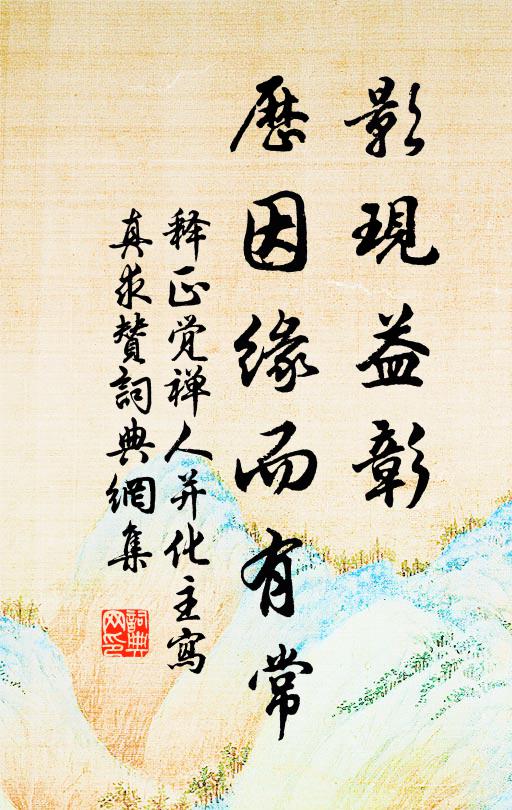 影現益彰
歷因緣而有常
释正觉禅人并化主寫
真求賛詞典網集
詞典
网印